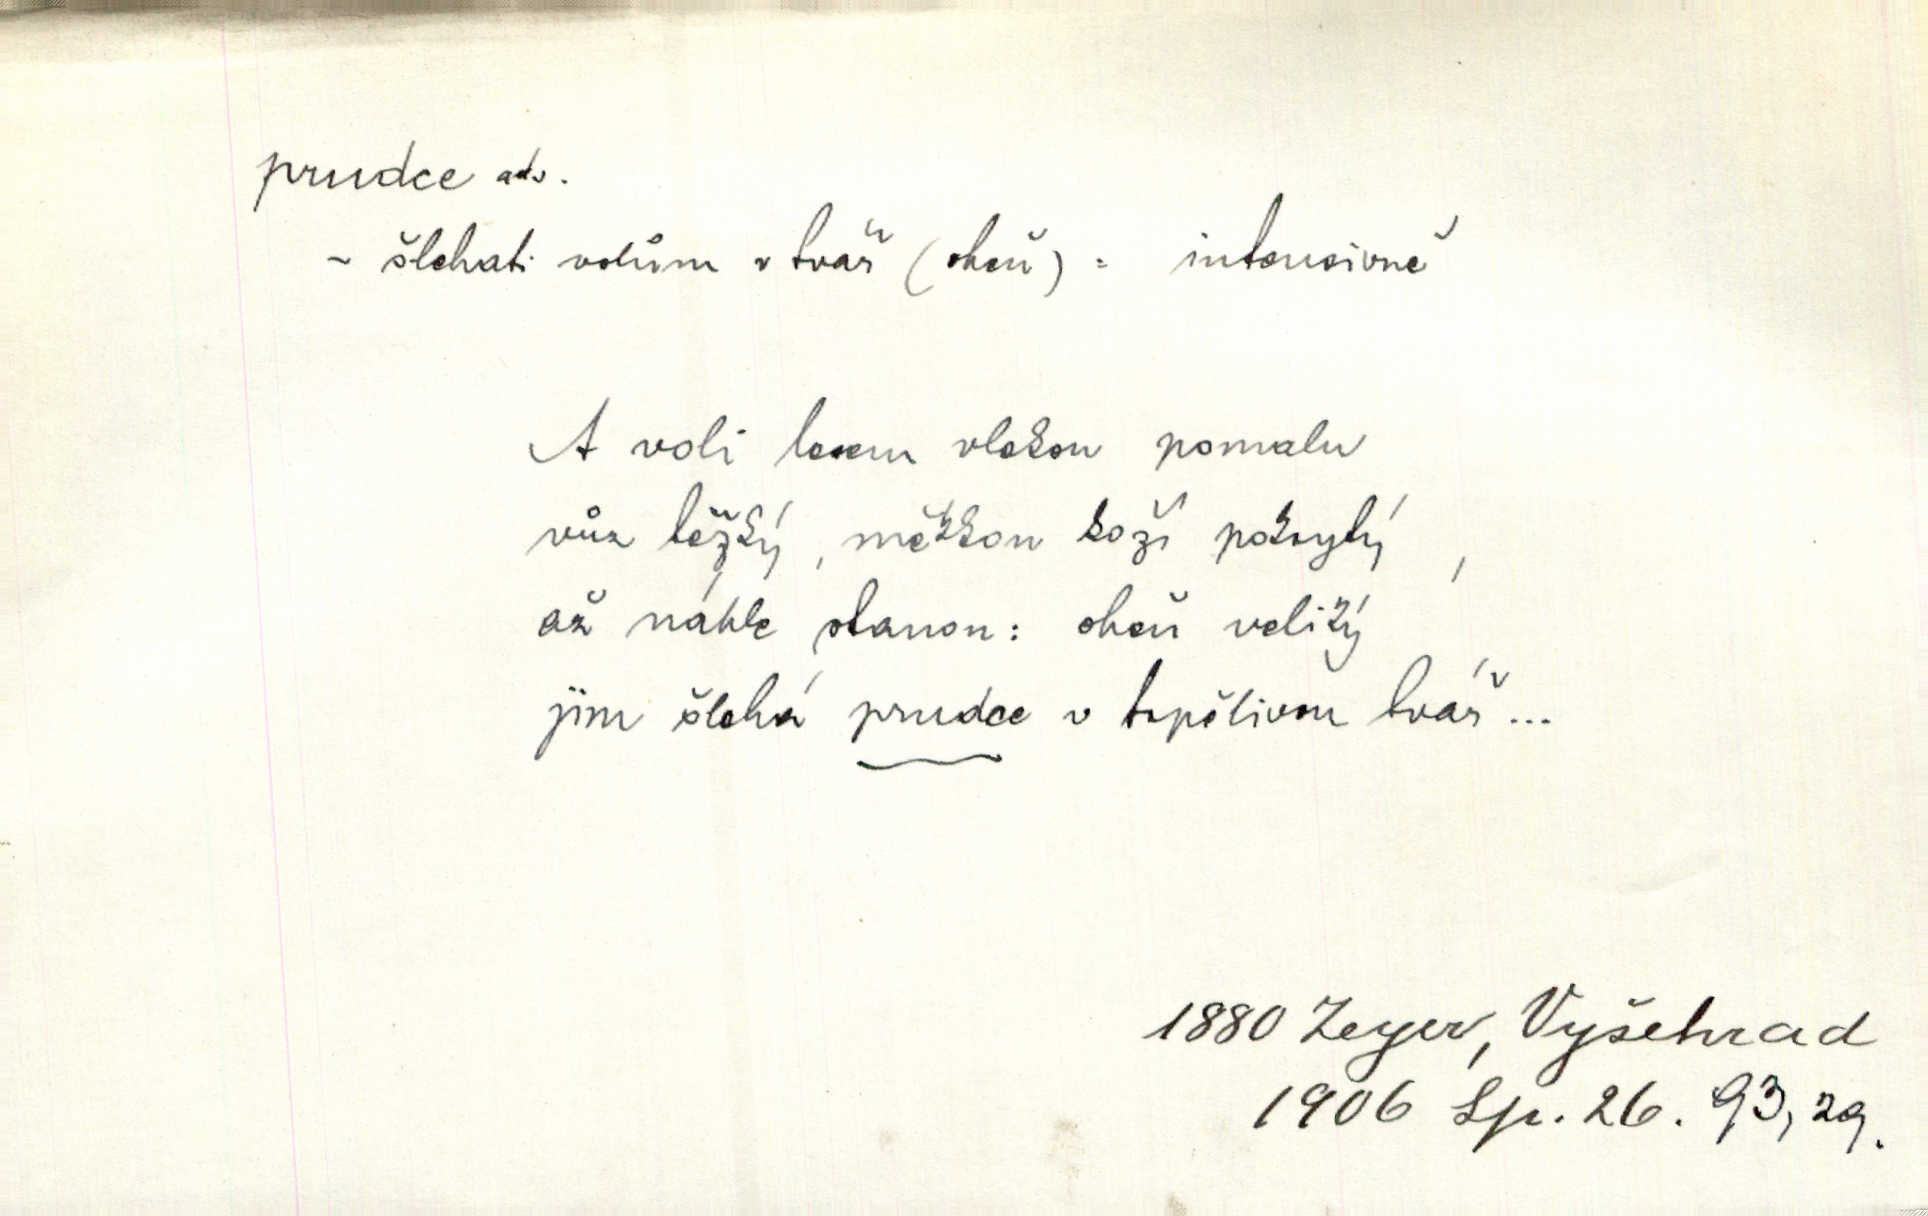 prudce adv.
~ šlehati volům v tvář (oheň) = intensivně
A voli lesem vlekou pomalu
vůz těžký, měkkou koží pokrytý,
až náhle stanou: oheň veliký
jim šlehá prudce v trpělivou tvář...
1880 Zeyer, Vyšehrad
1906 Sp. 26. 93, 29.